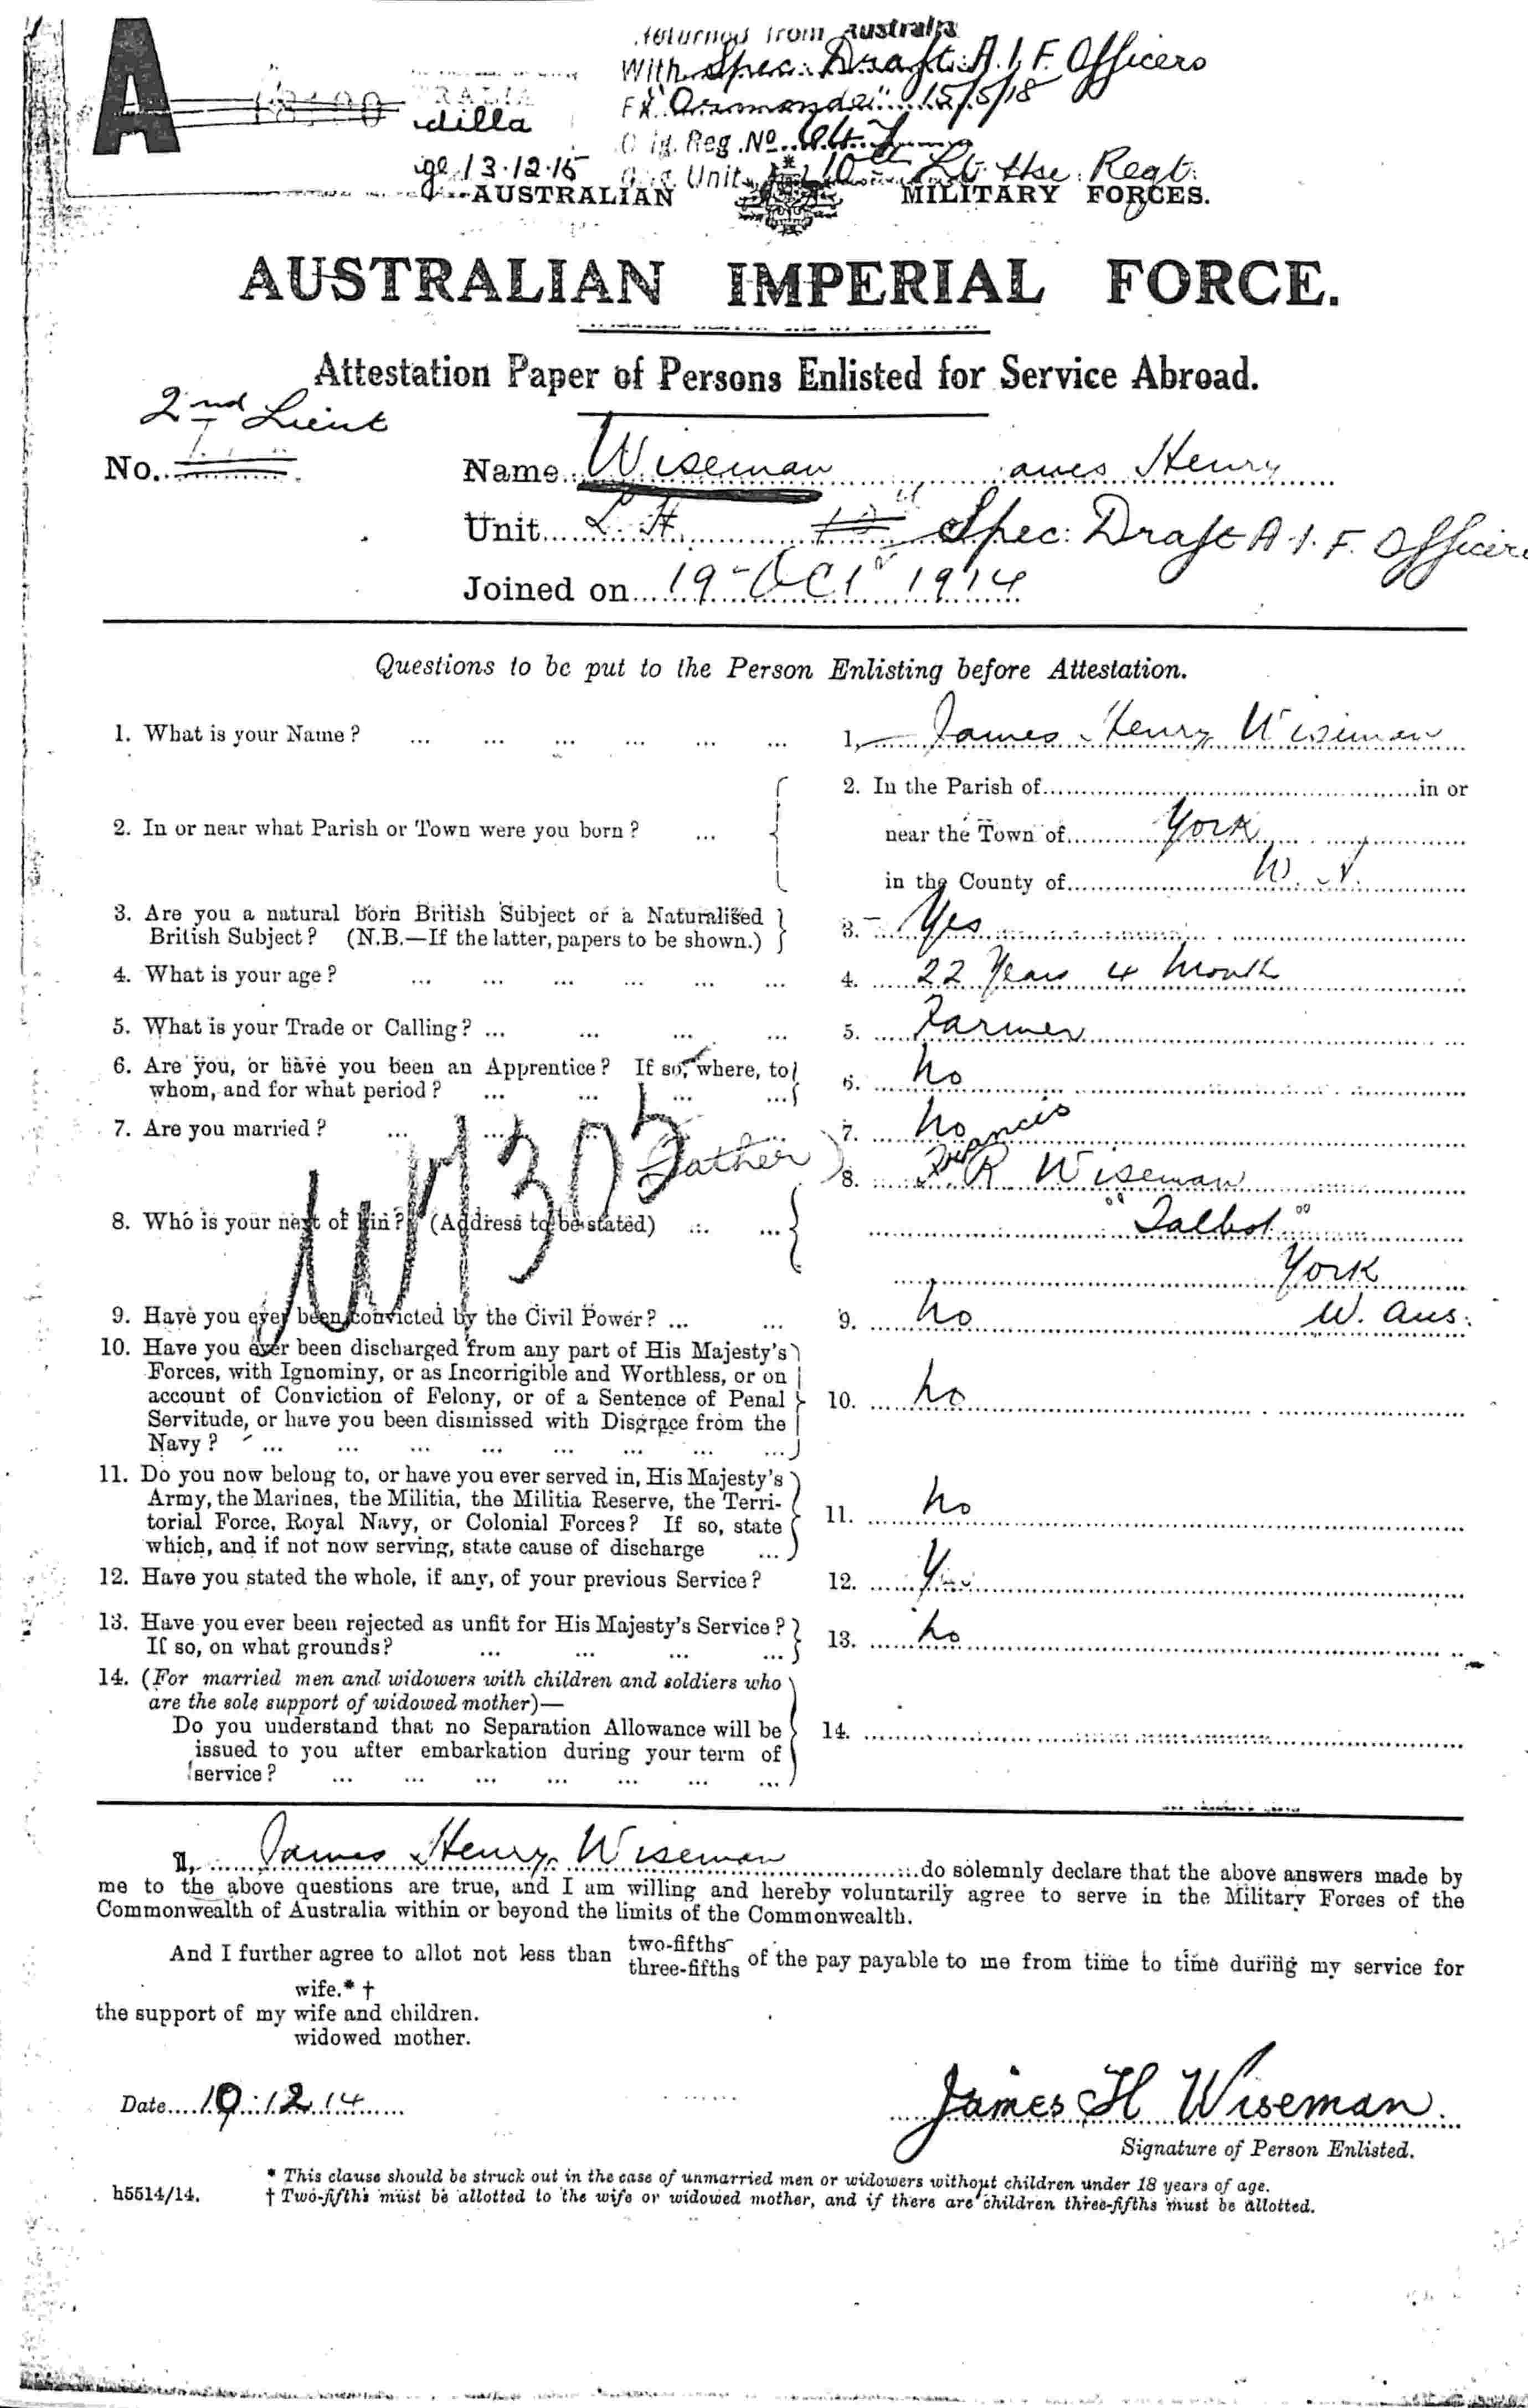 A
returned from Australia
With Spec: Draft A.I.F. Officers
Ex "Ormonde" 15/5/18
dilla
Orig. Reg. No.
13.12.15
Orig. Unit 10th Lt. Hse. Regt.
AUSTRALIAN MILITARY FORCES.
AUSTRALIAN IMPERIAL FORCE.
Attestation Paper of Persons Enlisted for Service Abroad.
2nd Lieut
No. Name Wiseman James Henry
Unit L. H. Spec: Draft A.I.F. Officers
Joined on 19 - Oct 1914
Questions to be put to the Person Enlisting before Attestation.
1. What is your Name? ... ... ... ... ... ... 1. James Henry Wiseman
2. In the Parish of in or
2. In or near what Parish or Town were you born? ... near the Town of York
in the County of W. A.
3. Are you a natural born British Subject or a Naturalised
British Subject? (N.B.—If the latter, papers to be shown.) 3. Yes
4. What is your age? ... ... ... ... ... ... 4. 22 Years 4 Month
5. What is your Trade or Calling? ... ... ... ... 5. Farmer
6. Are you, or have you been an Apprentice? If so, where, to
whom, and for what period? ... ... ... ... 6. No
7. Are you married? ... ... ... ... 7. No
Father Francis
8. R Wiseman
8. Who is your next of kin? (Address to be stated) ... ... "Talbot"
York
9. Have you ever been convicted by the Civil Power? ... ... 9. No W. Aus.
10. Have you ever been discharged from any part of His Majesty's
Forces, with Ignominy, or as Incorrigible and Worthless, or on
account of Conviction of Felony, or of a Sentence of Penal 10. No
Servitude, or have you been dismissed with Disgrace from the
Navy? ... ... ... ... ... ... ... ...
11. Do you now belong to, or have you ever served in, His Majesty's
Army, the Marines, the Militia, the Militia Reserve, the Terri-
torial Force, Royal Navy, or Colonial Forces? If so, state 11. No
which, and if not now serving, state cause of discharge ...
12. Have you stated the whole, if any, of your previous Service? 12. Yes
13. Have you ever been rejected as unfit for His Majesty's Service?
If so, on what grounds? ... ... ... ... 13. No
14. (For married men and widowers with children and soldiers who
are the sole support of widowed mother)—
Do you understand that no Separation Allowance will be 14.
issued to you after embarkation during your term of
service? ... ... ... ... ... ... ...
I, James Henry Wiseman do solemnly declare that the above answers made by
me to the above questions are true, and I am willing and hereby voluntarily agree to serve in the Military Forces of the
Commonwealth of Australia within or beyond the limits of the Commonwealth.
And I further agree to allot not less than two-fifths three-fifths of the pay payable to me from time to time during my service for
wife.* †
the support of my wife and children.
widowed mother.
Date 19.12.14 James H Wiseman.
Signature of Person Enlisted.
* This clause should be struck out in the case of unmarried men or widowers without children under 18 years of age.
h5514/14. † Two-fifths must be allotted to the wife or widowed mother, and if there are children three-fifths must be allotted.